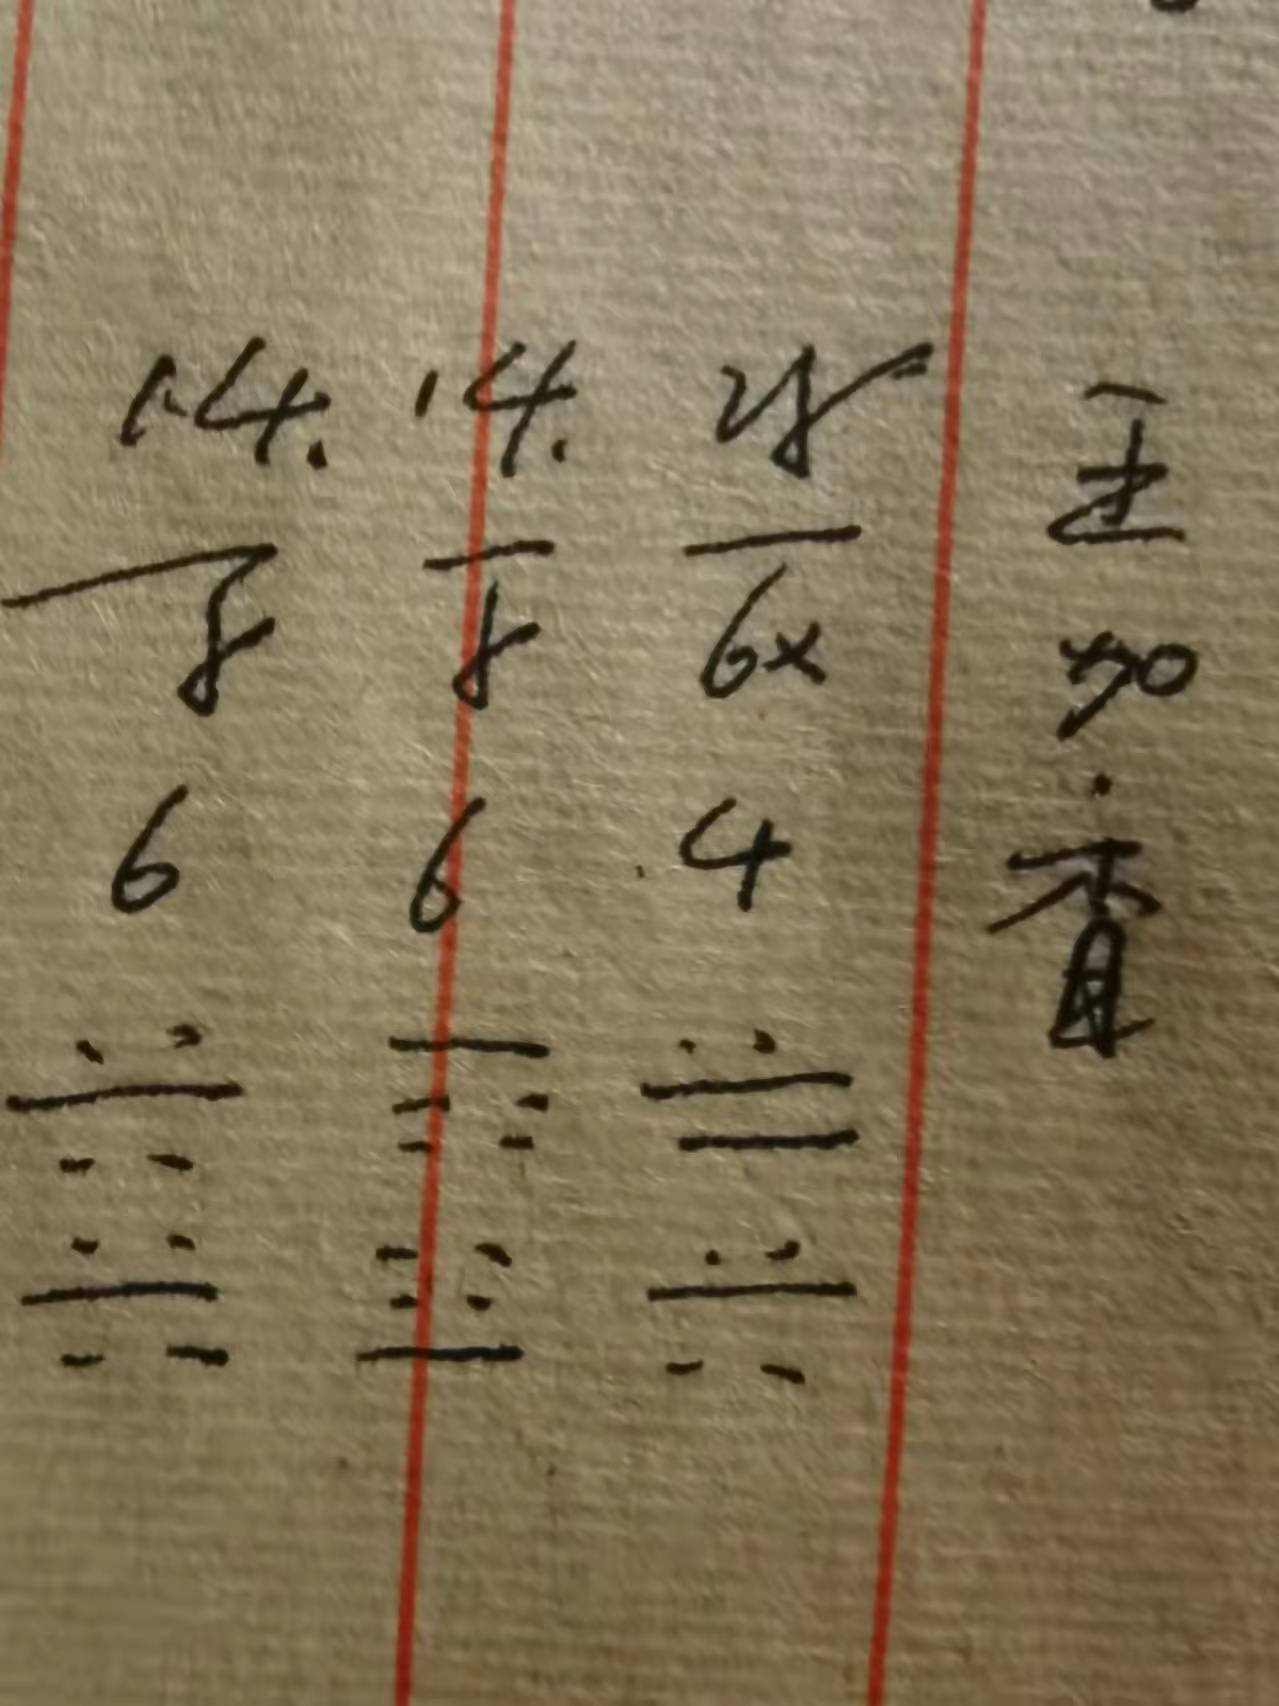 王加香
28
6x
4
14.
8
6
14.
8
6